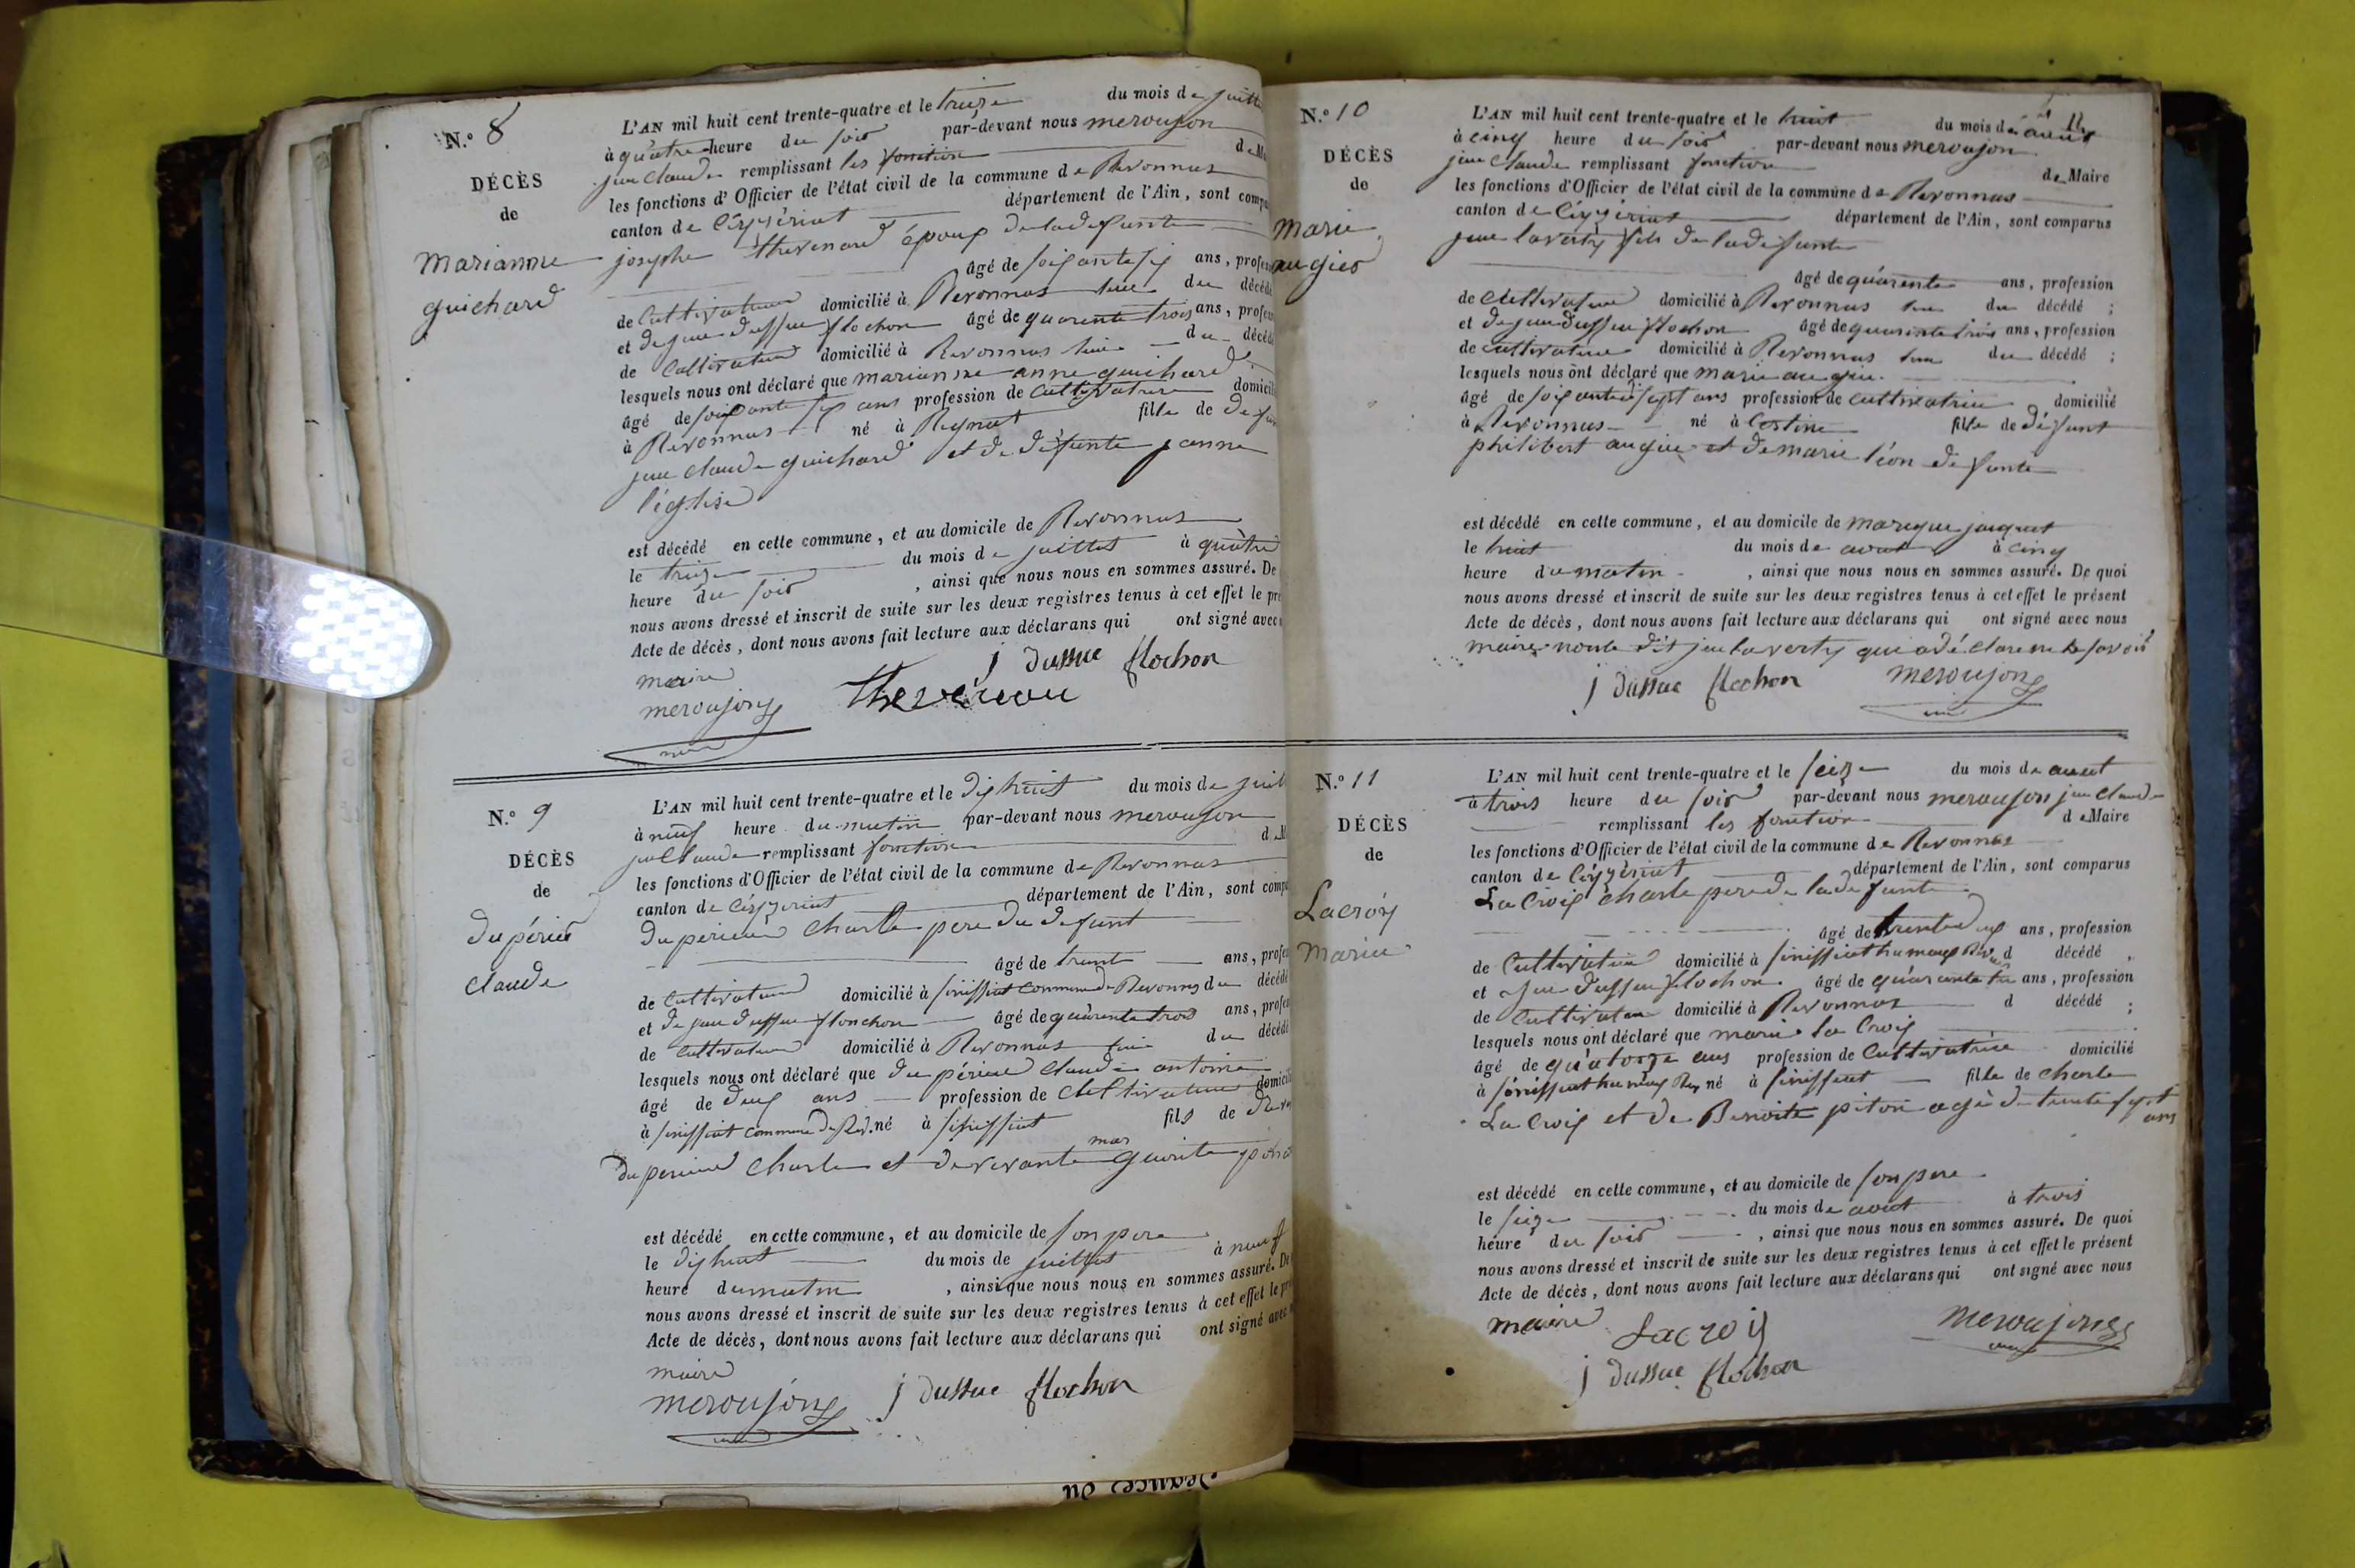 N.º 8
DÉCÈS
de
marianne
guichard
L'AN mil huit cent trente-quatre et le treize du mois de juill
à quatre heure du soir par-devant nous meroujon
jean claude remplissant les fonction de M
les fonctions d'Officier de l'état civil de la commune de Revonnas
canton de Céyzériat département de l'Ain, sont compa
josephe thevenard époux de la defunte
âgé de soixante six ans, profess
de Cultivateur domicilié à Revonnas du décédé
et de jean dussue flochon âgé de quarente trois ans, profess
de Cultivateur domicilié à Revonnas du décédé
lesquels nous ont déclaré que marianne anne guichard
âgé de soixante six ans profession de Cultivatrice domicil
à Revonnas né à Reynat fille de
jean claude guichard et de défunte janne
l'église
est décédé en cette commune, et au domicile de Revonnas
le treize du mois de juillet à quatre
heure du soir, ainsi que nous nous en sommes assuré. De
nous avons dressé et inscrit de suite sur les deux registres tenus à cet effet le pré
Acte de décès, dont nous avons fait lecture aux déclarans qui ont signé avec
maire
j dussue flochon
meroujon
N.º 9
DÉCÈS
de
dupérier
claude
L'AN mil huit cent trente-quatre et le dix huit du mois de juil
à neuf heure du matin par-devant nous meroujon
remplissant fonction de M
les fonctions d'Officier de l'état civil de la commune de Revonnas
canton de Céyzériat département de l'Ain, sont compa
duperier Charle pere du defunt
âgé de trente ans, profess
de Cultivateur domicilié à sénissiat commune de Revonnas du décédé
et de jean dussue flonchon âgé de quarente trois ans, profess
de Cultivateur domicilié à Revonnas du décédé
lesquels nous ont déclaré que du périer Claude antoine
âgé de deux ans profession de Cultivateur domicil
à sénissiat commune de Rev. né à sénissiat fils de
duperier Charle et de vivante
est décédé en cette commune, et au domicile de son pere
le dix huit du mois de juillet à neuf
heure du matin, ainsi que nous nous en sommes assuré. De
nous avons dressé et inscrit de suite sur les deux registres tenus à cet effet le pré
Acte de décès, dont nous avons fait lecture aux déclarans qui ont signé avec
maire
meroujon j dussue flochon
N.º 10
DÉCÈS
de
marie
augier
L'AN mil huit cent trente-quatre et le huit du mois de aout
à cinq heure du soir par-devant nous meroujon
jean Claude remplissant fonction de Maire
les fonctions d'Officier de l'état civil de la commune de Revonnas
canton de Céyzériat département de l'Ain, sont comparus
jean laverty fils de la defunte
âgé de quarente ans, profession
de Cultivateur domicilié à Revonnas du décédé;
et de jean dussue flochon âgé de quarente trois ans, profession
de Cultivateur domicilié à Revonnas du décédé;
lesquels nous ont déclaré que marie augier
âgé de soixante sept ans profession de cultivatrice domicilié
à Revonnas né à fille de défunt
philibert augier et de marie léon defunte
est décédé en cette commune, et au domicile de
le huit du mois de aout à cinq
heure du matin, ainsi que nous nous en sommes assuré. De quoi
nous avons dressé et inscrit de suite sur les deux registres tenus à cet effet le présent
Acte de décès, dont nous avons fait lecture aux déclarans qui ont signé avec nous
maire nonle dit jean laverty qui a déclare ne le savoir
j dussue flochon meroujon
N.º 11
DÉCÈS
de
Lacroix
marie
L'AN mil huit cent trente-quatre et le seize du mois de aout
à trois heure du soir par-devant nous meroujon jean Claude
remplissant les fonction de Maire
les fonctions d'Officier de l'état civil de la commune de Revonnas
canton de Céyzériat département de l'Ain, sont comparus
La Croix Charle pere de la defunte
âgé de ans, profession
de Cultivateur domicilié à sénissiat d décédé,
et jean dussue flochon âgé de quarante ans, profession
de Cultivateur domicilié à Revonnas d décédé;
lesquels nous ont déclaré que marie la Croix
âgé de quatorze ans profession de Cultivatrice domicilié
à sénissiat né à sénissiat fille de Charle
La Croix et de Benoite piton agé de trente sept
ans
est décédé en cette commune, et au domicile de son pere
le seize du mois de aout à trois
heure du soir, ainsi que nous nous en sommes assuré. De quoi
nous avons dressé et inscrit de suite sur les deux registres tenus à cet effet le présent
Acte de décès, dont nous avons fait lecture aux déclarans qui ont signé avec nous
maire Lacroix meroujon
j dussue flochon